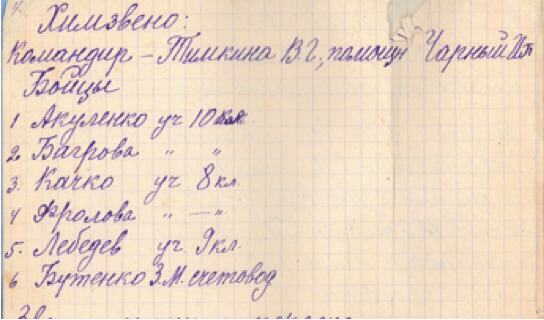 Химзвено:
Командир – Тимкина В.Г., помощн Чарный И.П
Бойцы
1 Акуленко уч 10 кл
2 Багрова " "
3. Качко уч 8 кл.
4 Фролова " —"
5. Лебедев уч. 9 кл.
6 Бутенко З.М. счетовод